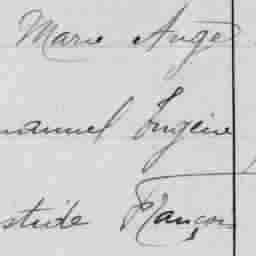 Marie Ange
nanuel Eugène
stide François